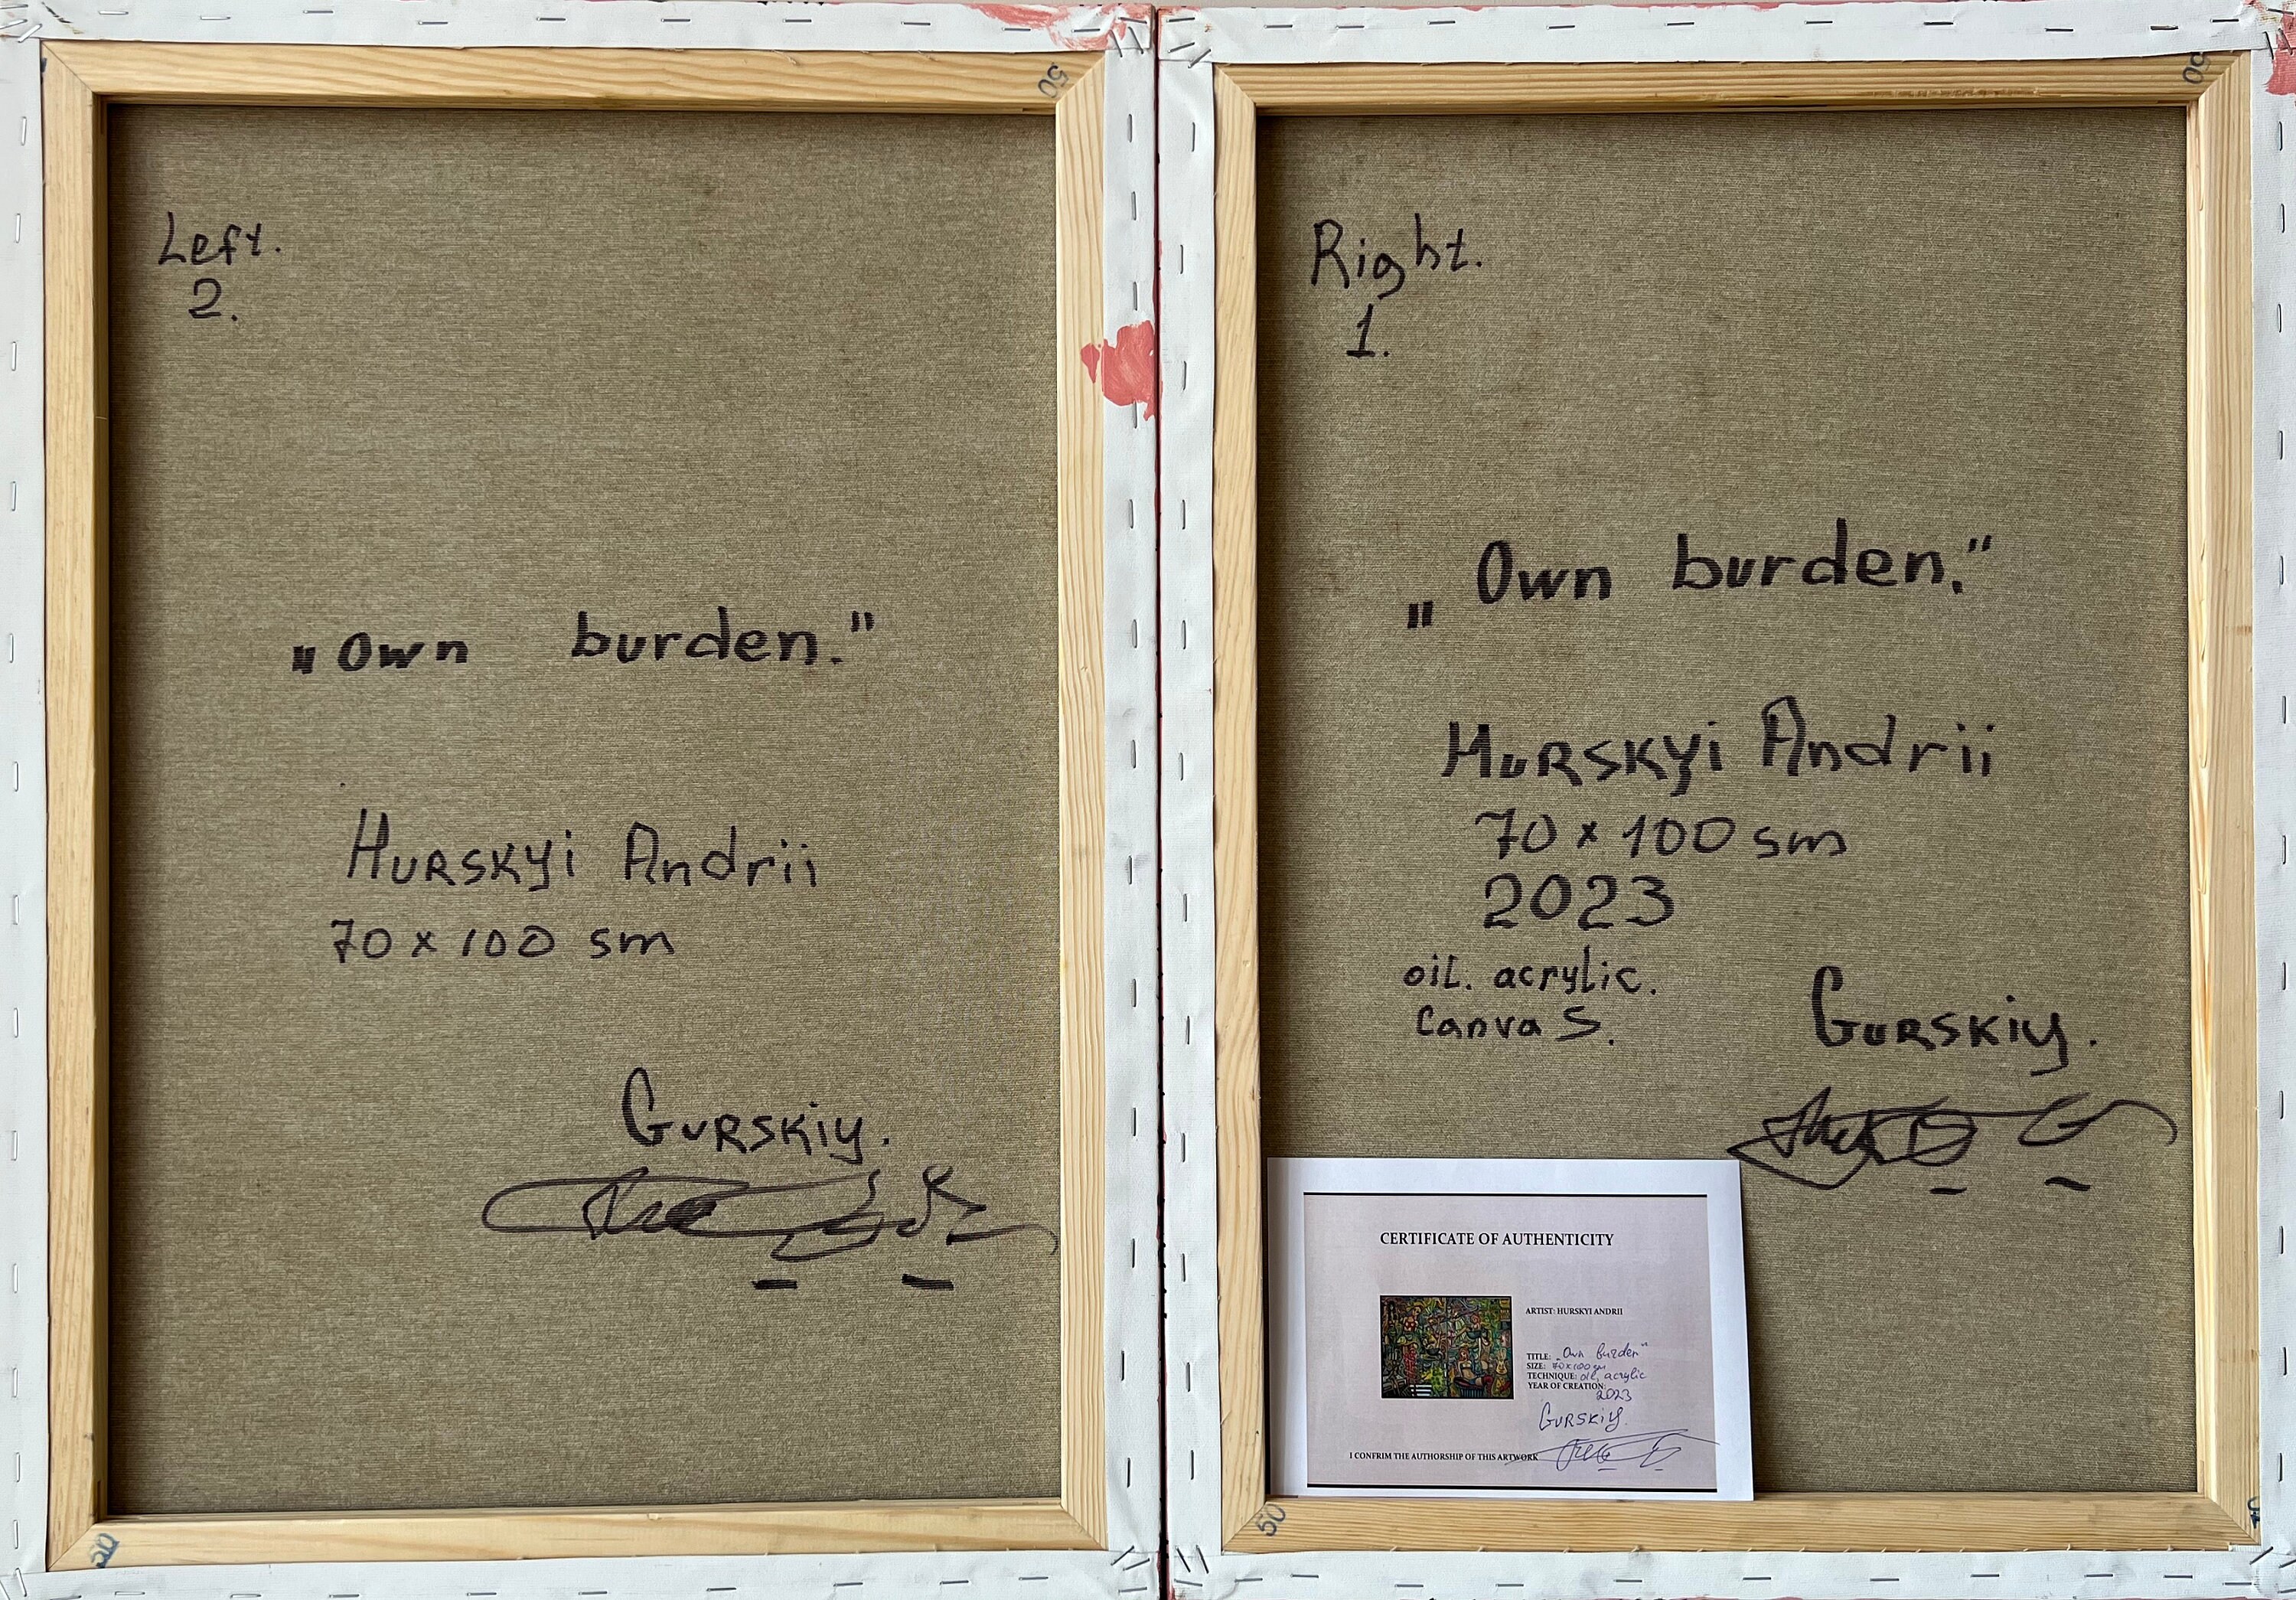 50
Left.
2.
„Own burden."
HURSKYi Andrii
70 x 100 sm
GURSKIY.
50
50
Right.
1.
„Own burden."
HURSKYi Andrii
70 x 100 sm
2023
oil. acrylic.
CanvaS.
GURSKIY.
CERTIFICATE OF AUTHENTICITY
ARTIST: HURSKYI ANDRII
TITLE: „Own burden"
SIZE: 70x100 sm
TECHNIQUE: oil, acrylic
YEAR OF CREATION:
2023
GURSKIY.
I CONFRIM THE AUTHORSHIP OF THIS ARTWORK
50